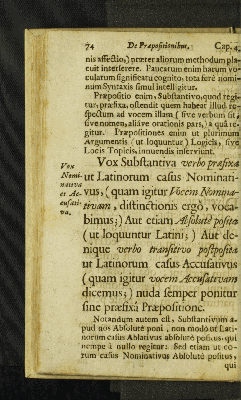 74 De Præpositionibus. Cap. 4.
nis affectio,) præter aliorum methodum pla-
cuit interserere. Paucarum enim harum vo-
cularum significatu cognito, tota ferè nomi-
num Syntaxis simul intelligitur.
Præpositio enim, Substantivo, quod regi-
tur, præfixa, ostendit quem habeat illud re-
spectum ad vocem illam (sive verbum sit,
sive nomen, aliàve orationis pars,) à quâ re-
gitur. Præpositiones enim ut plurimum
Argumentis (ut loquuntur) Logicis, sive
Locis Topicis, innuendis inserviunt.
Vox
Nomi-
nativa
et Ac-
cusati-
va.
Vox Substantiva verbo præfixa
ut Latinorum casus Nominati-
vus, (quam igitur Vocem Nomina-
tivam, distinctionis ergò, voca-
bimus;) Aut etiam Absolutè posita
(ut loquuntur Latini;) Aut de-
nique verbo transitivo postposita
ut Latinorum casus Accusativus
(quam igitur vocem Accusativam
dicemus;) nuda semper ponitur
sine præfixâ Præpositione.
Notandum autem est, Substantivum a-
pud nos Absolutè poni, non modò ut Lati-
norum casus Ablativus absolutè positus, qui
nempe à nullo regitur: Sed etiam ut eo-
rum casus Nominativus Absolutè positus,
qui